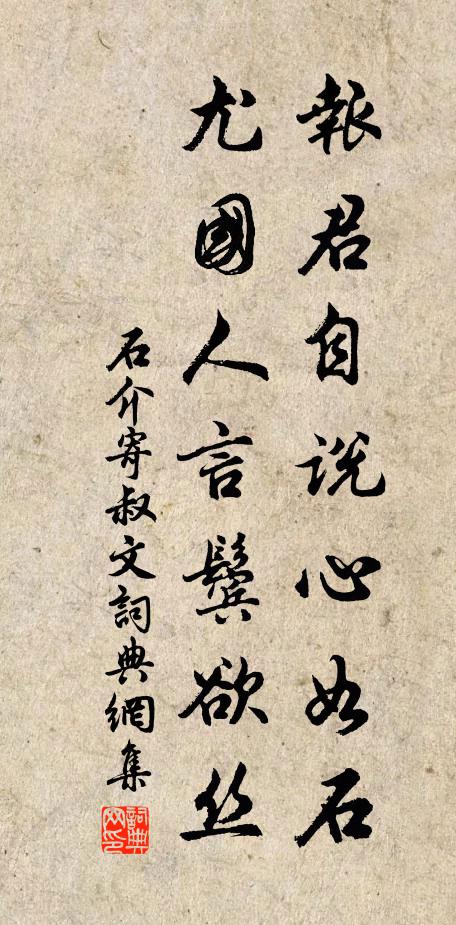 報君自說心如石
尤國人言鬢欲丝
石介寄叔文詞典網集
詞典网印